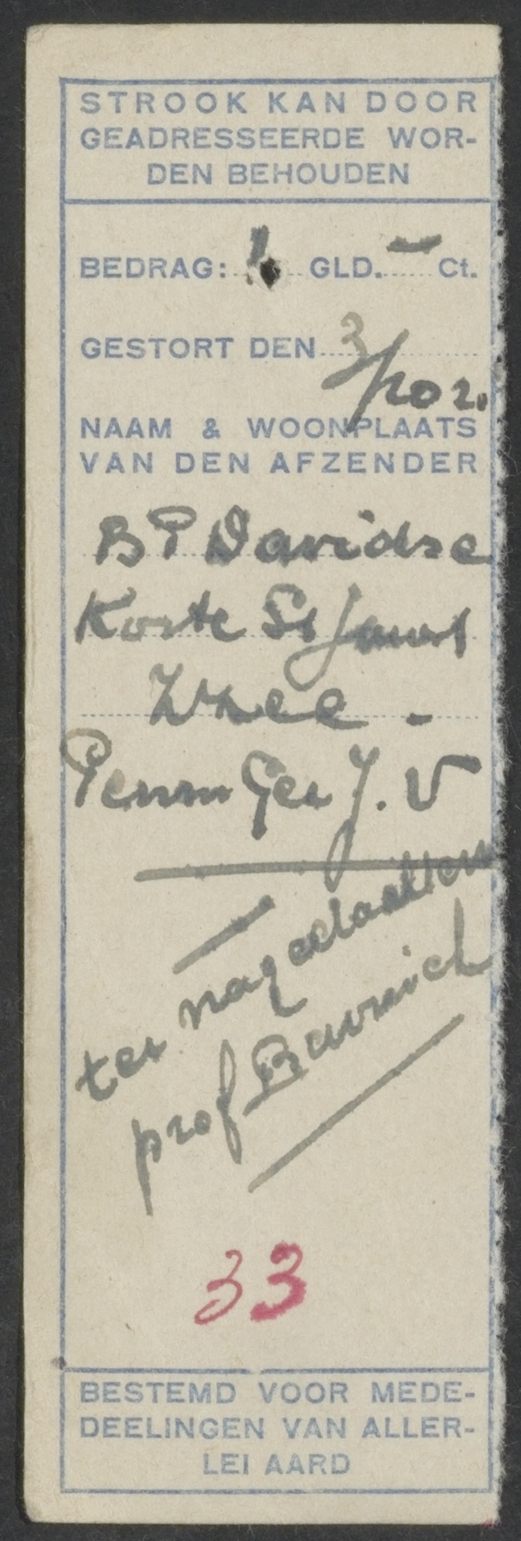 STROOK KAN DOOR
GEADRESSEERDE WOR-
DEN BEHOUDEN
BEDRAG: 1 GLD. — Ct.
GESTORT DEN 3/
NAAM & WOONPLAATS
VAN DEN AFZENDER
B P Davidse
Korte St
Penn Ger J. V
ter nagedachten
prof
33
BESTEMD VOOR MEDE-
DEELINGEN VAN ALLER-
LEI AARD